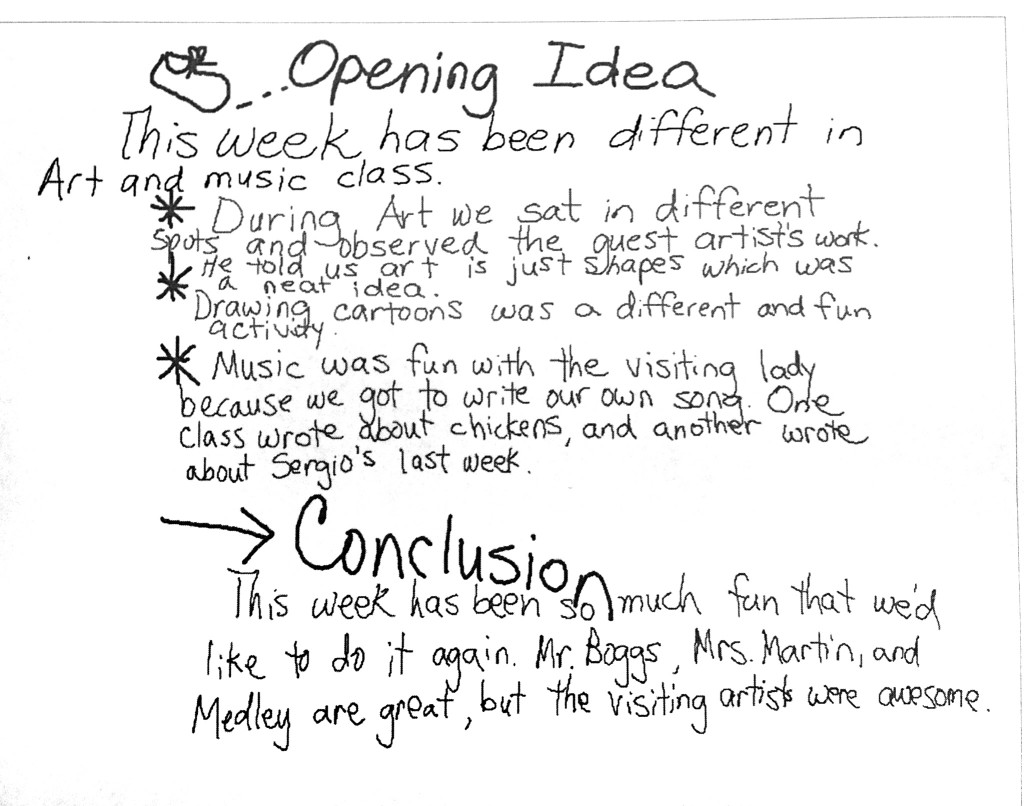 ...Opening Idea
This week has been different in
Art and music class.
* During Art we sat in different
spots and observed the guest artist's work.
* He told us art is just shapes which was
a neat idea.
* Drawing cartoons was a different and fun
activity.
* Music was fun with the visiting lady
because we got to write our own song. One
class wrote about chickens, and another wrote
about Sergio's last week.
→ Conclusion
This week has been so much fun that we'd
like to do it again. Mr. Boggs, Mrs. Martin, and
Medley are great, but the visiting artists were awesome.